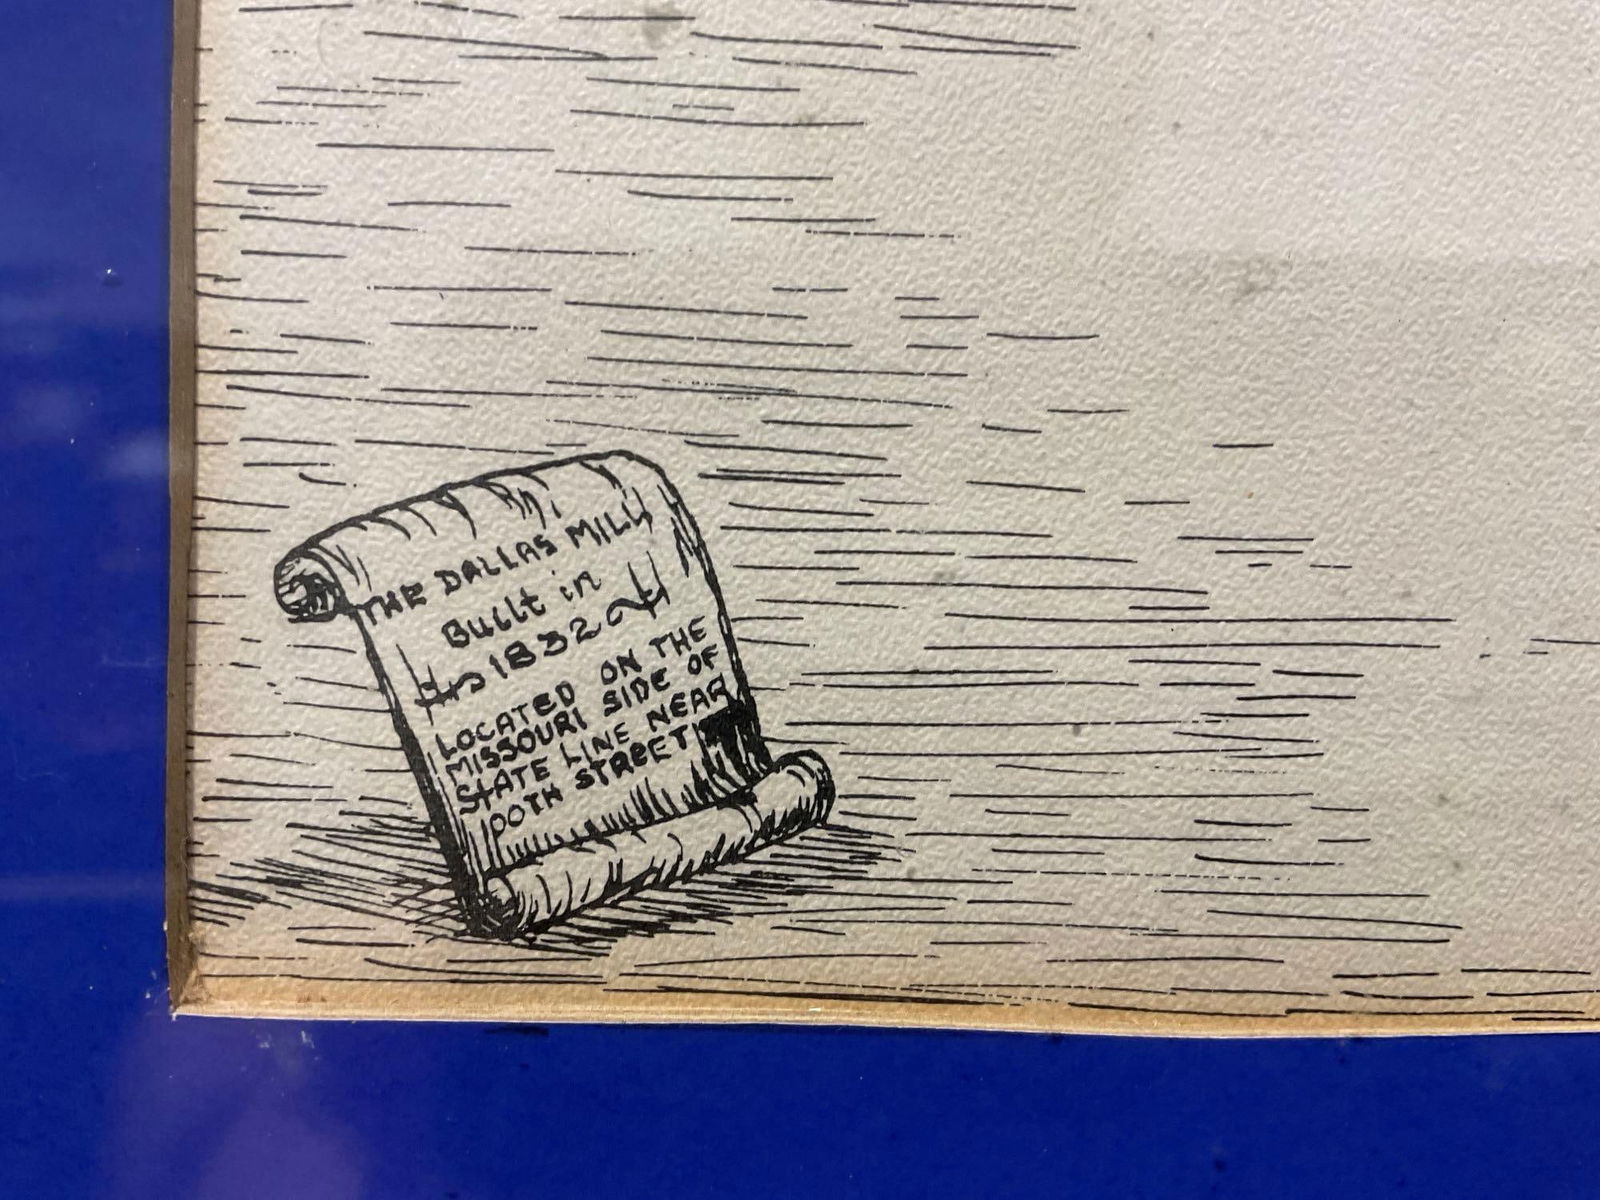 THE DALLAS MILL
Built in
1832
LOCATED ON THE
MISSOURI SIDE OF
STATE LINE NEAR
STREET